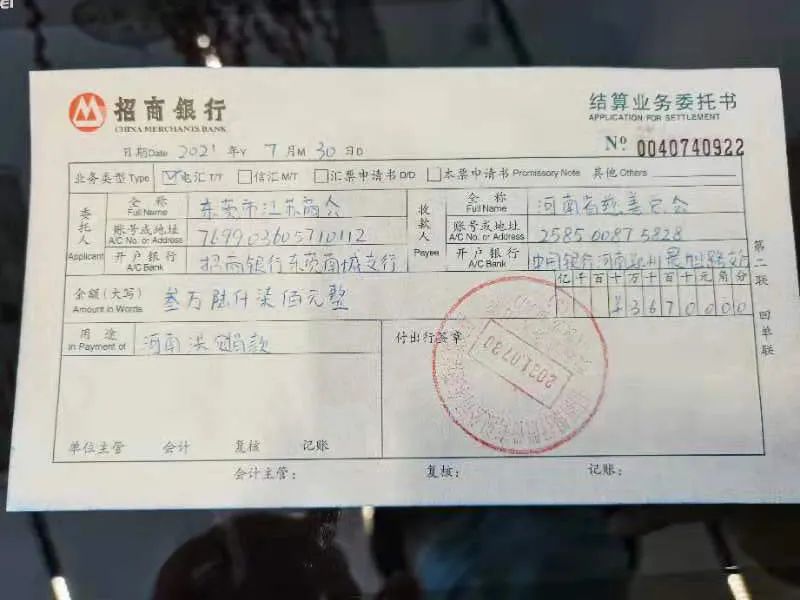 招商银行
CHINA MERCHANTS BANK
结算业务委托书
APPLICATION FOR SETTLEMENT
日期Date 2021 年Y 7 月M 30 日D
Nº 0040740922
业务类型Type 电汇T/T 信汇M/T 汇票申请书D/D 本票申请书Promissory Note 其他Others
委托人 Applicant
全称 Full Name 东莞市江苏商会
账号或地址 A/C No. or Address 769903605710112
开户银行 A/C Bank 招商银行东莞南城支行
收款人 Payee
全称 Full Name 河南省慈善总会
账号或地址 A/C No. or Address 258500875828
开户银行 A/C Bank 中国银行河南郑州支行
金额(大写) Amount in Words 叁万陆仟柒佰元整
亿千百十万千百十元角分
¥3670000
用途 In Payment of 河南洪灾捐款
付出行签章
2021.07.30
单位主管 会计 复核 记账
会计主管: 复核: 记账:
第二联 回单联